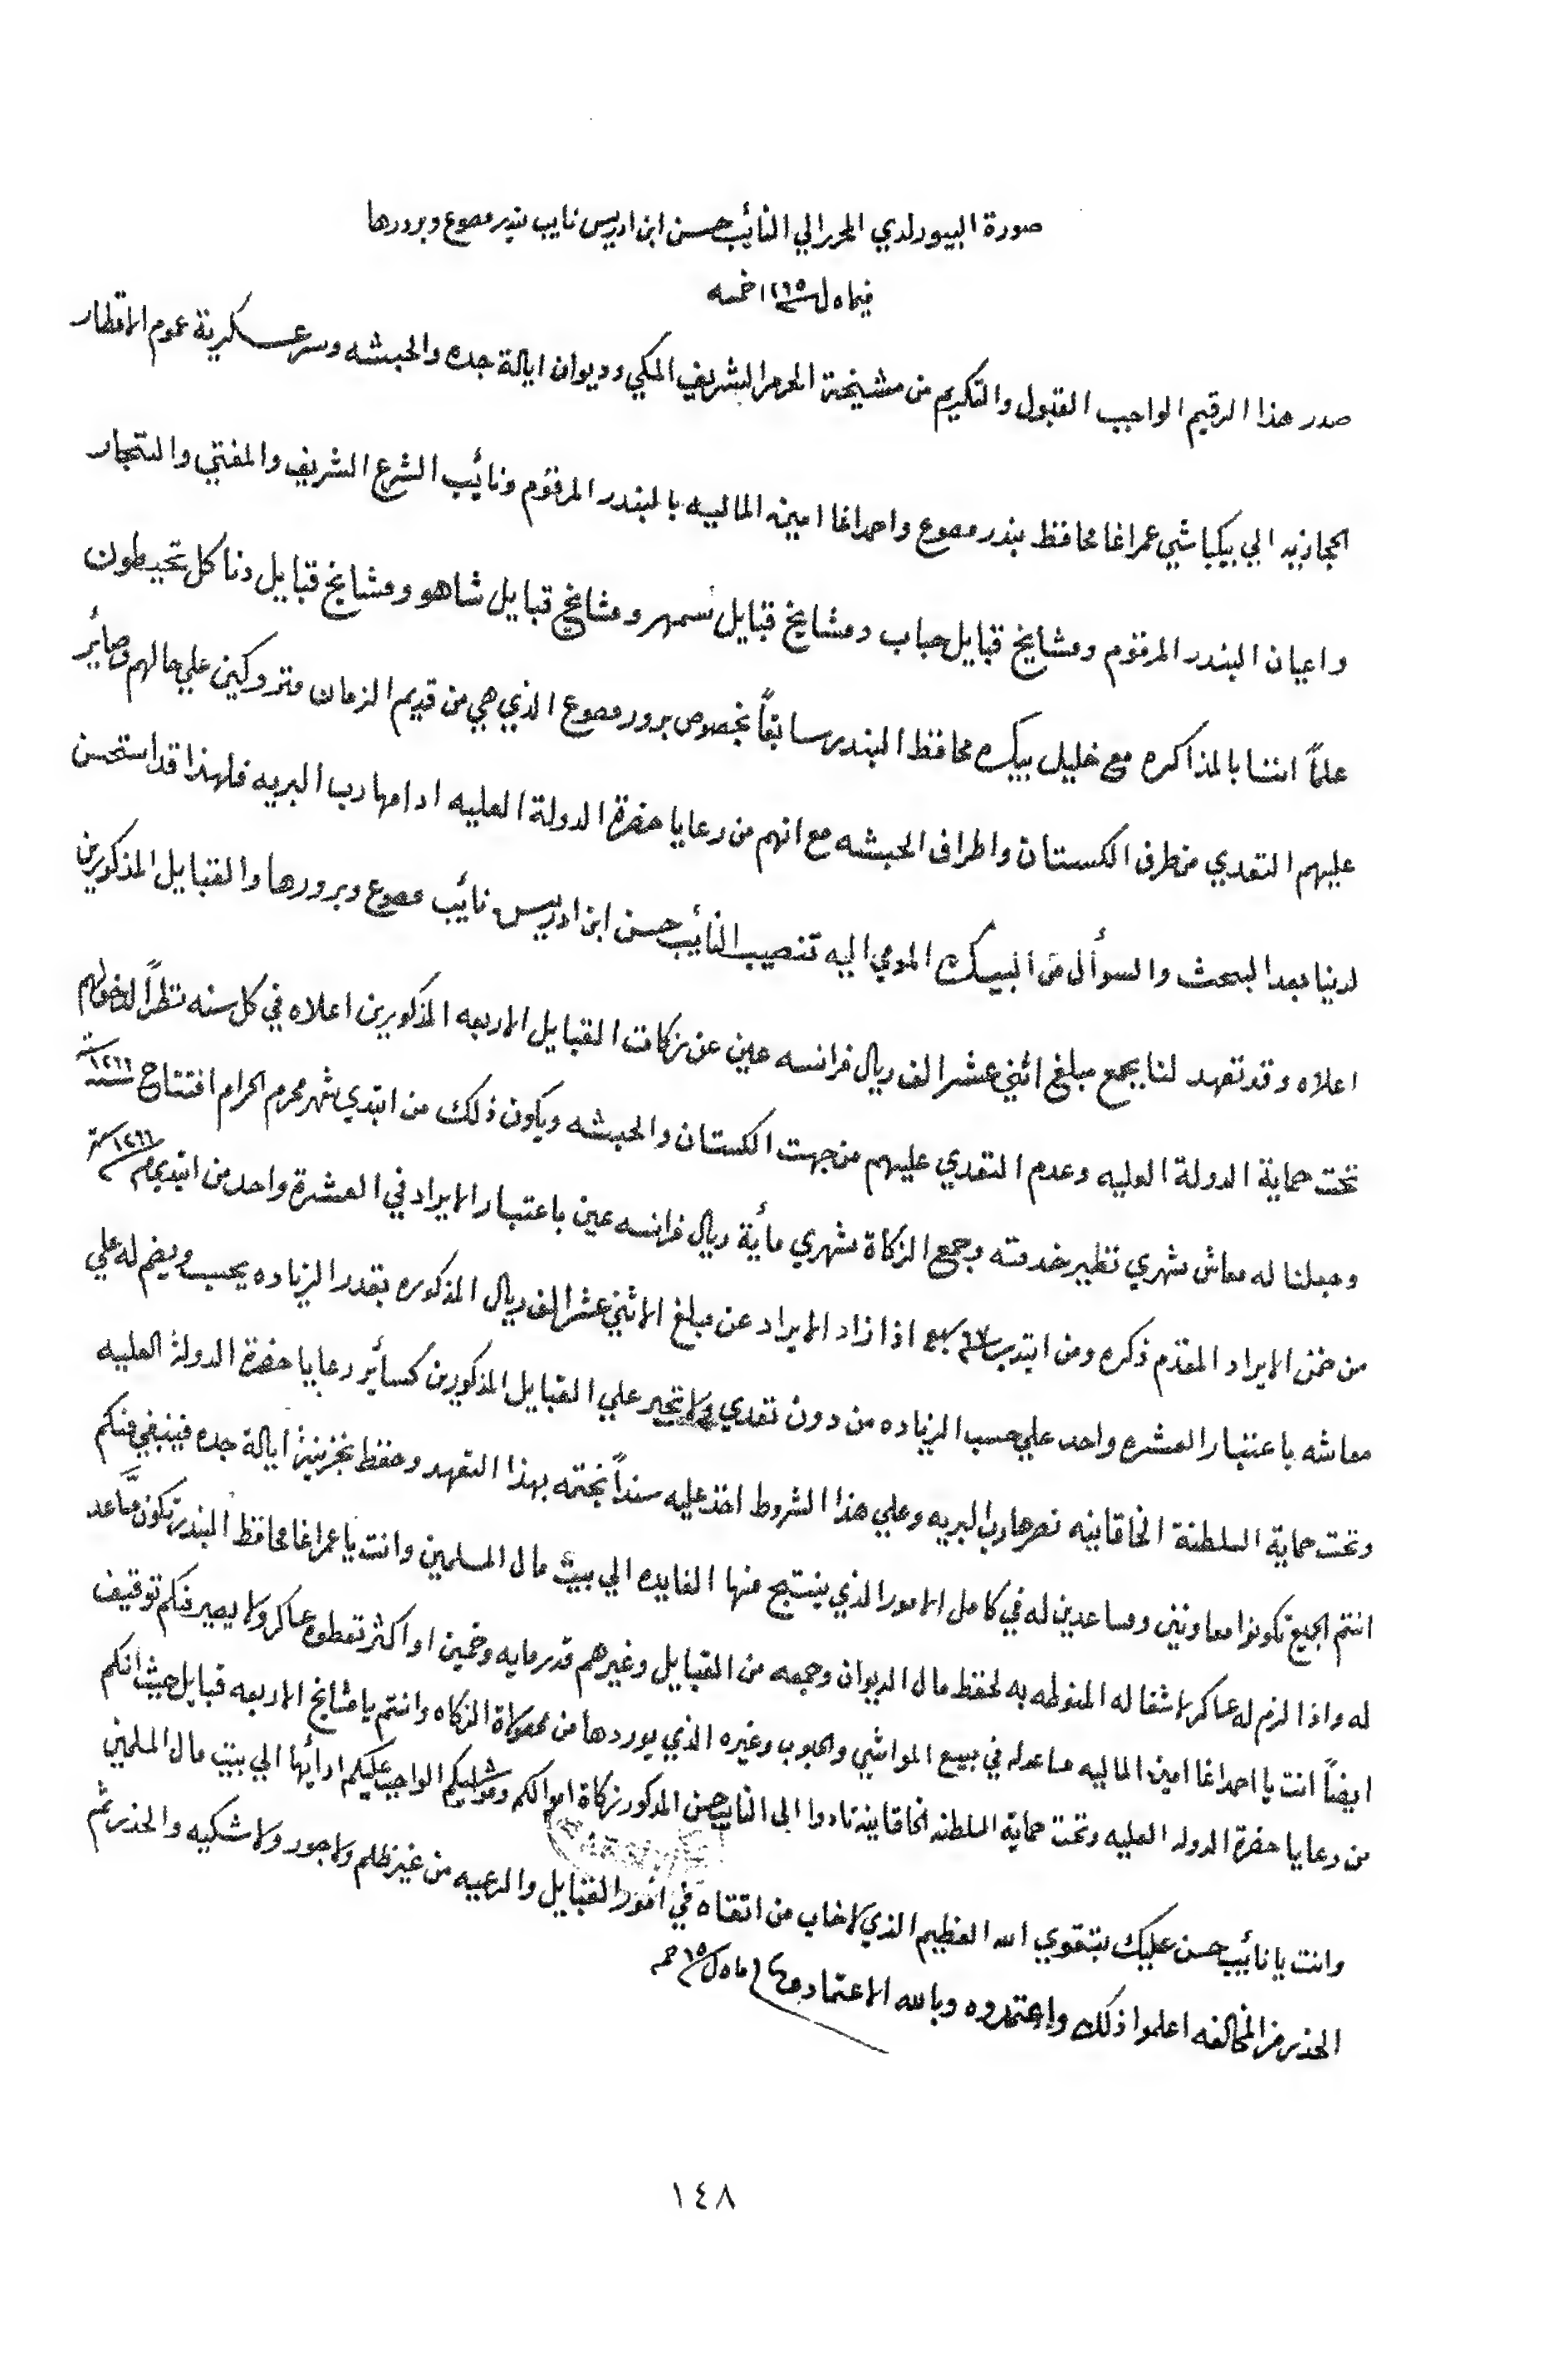 صورة البيورلدي المحرر الي النائب حسن ابن ادريس نايب بندر مصوع وبرورها
في ماه ل سنه ١٢٦٥ خمسه
صدر هذا الرقيم الواجب القبول والتكريم من مشيخة الحرم الشريف المكي وديوان ايالة جده والحبشه وسرعسكرية عموم الاقطار
الحجازيه الي بيكباشي عمر اغا محافظ بندر مصوع واحمد اغا امين الماليه بالبندر المرقوم ونائب الشرع الشريف والمفتي والتجار
واعيان البندر المرقوم ومشايخ قبايل حباب ومشايخ قبايل سمهر ومشايخ قبايل شاهو ومشايخ قبايل دناكل تحيطون
علماً اننا بالمذاكره مع خليل بيك محافظ البندر سابقاً بخصوص برور مصوع الذي هي من قديم الزمان متروكين علي حالهم وصائر
عليهم التعدي من طرف الكستان واطراف الحبشه مع انهم من رعايا حضرة الدولة العليه ادامها رب البريه فلهذا قد استحسن
لدينا بعد البحث والسوأل من البيك المومي اليه تنصيب النائب حسن ابن ادريس نائب مصوع وبرورها والقبايل المذكورين
اعلاه وقد تعهد لنا بجمع مبلغ اثني عشر الف ريال فرانسه عين عن زكات القبايل الاربعه المذكورين اعلاه في كل سنه نظراً لدخولهم
تحت حماية الدولة العليه وعدم التعدي عليهم من جهت الكستان والحبشه ويكون ذلك من ابتدي شهر محرم الحرام افتتاح سنه ١٢٦٦
وجعلنا له معاش شهري نظير خدمته وجمع الزكاة شهري مأية ريال فرانسه عين باعتبار الايراد في العشرة واحد من ابتدي م سنه ١٢٦٦
من ضمن الايراد المقدم ذكره ومن ابتدي سنه ٦٧ اذا زاد الايراد عن مبلغ الاثني عشر الف ريال المذكوره بقدر الزياده يحسب ويضم له علي
معاشه باعتبار العشره واحد علي حسب الزياده من دون تعدي ولا تجبر علي القبايل المذكورين كسائر رعايا حضرة الدولة العليه
وتحت حماية السلطنة الخاقانيه نصرها رب البريه وعلي هذا الشروط اخذ عليه سنداً بختمه بهذا التعهد وحفظ بخزينة ايالة جده فينبغي منكم
انتم الجميع تكونوا معاونين ومساعدين له في كامل الامور الذي ينتج منها الفايده الي بيت مال المسلمين وانت يا عمر اغا محافظ البندر تكون مساعد
له واذا لزم له عساكر لاشغاله المنوطه به لحفظ مال الديوان وجمعه من القبايل وغيرهم قدر مايه وخمسين او اكثر تعطوه عساكر ولا يصير منكم توقيف
ايضاً انت يا احمد اغا امين الماليه مساعد له في بيع المواشي والحبوب وغيره الذي يوردها من محصولاة الزكاه وانتم يا مشايخ الاربعه قبايل حيث انكم
من رعايا حضرة الدوله العليه وتحت حماية السلطنه الخاقانيه تادوا الى النايب حسن المذكور زكاة اموالكم ومواشيكم الواجب عليكم ادأيها الي بيت مال المسلمين
وانت يا نائب حسن عليك بتقوي الله العظيم الذي لا خاب من اتقاه في امور القبايل والرعيه من غير ظلم ولا جور ولا شكيه والحذر ثم
الحذر من المخالفه اعلموا ذلك واعتمدوه وبالله الاعتماد ماه ل سنه ٦٥
١٤٨